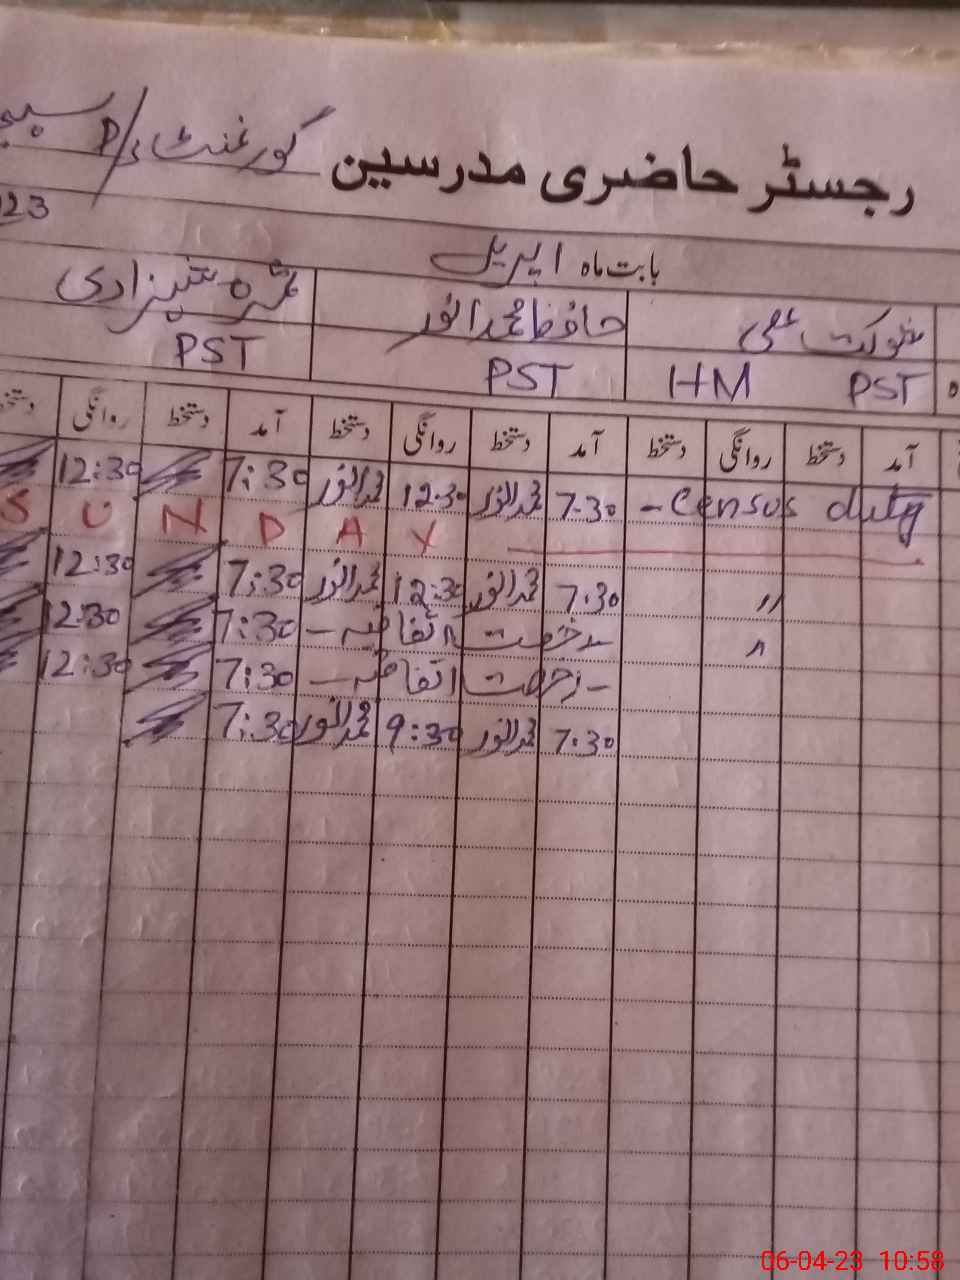 رجسٹر حاضری مدرسین گورنمنٹ P/S
بابت ماہ اپریل 23
شوکت علی حافظ محمد انور شہزادی
HM PST PST PST
آمد دستخط روانگی دستخط آمد دستخط روانگی دستخط آمد دستخط روانگی
- Census duty 7.30 محمد انور 12.30 محمد انور 7:30 12:30
S U N D A Y
" 7.30 محمد انور 12:30 محمد انور 7:30 12:30
" - رخصت اتفاقیہ - 7:30 12:30
- رخصت اتفاقیہ - 7:30 12:30
7:30 محمد انور 9:30 محمد انور 7:30
06-04-23 10:58